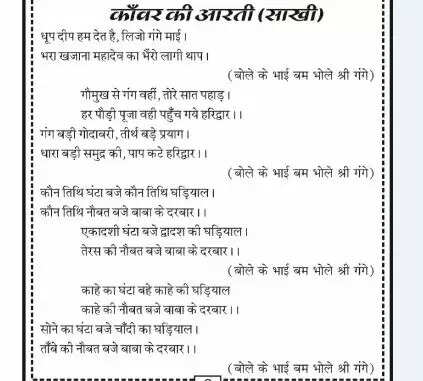 काँवर की आरती (साखी)
धूप दीप हम देत है, लिजो गंगे माई।
भरा खजाना महादेव का भैंरो लागी थाप।
(बोले के भाई बम भोले श्री गंगे)
गौमुख से गंग वहीं, तोरे सात पहाड़।
हर पौड़ी पूजा वही पहुँच गये हरिद्वार।।
गंग बड़ी गोदाबरी, तीर्थ बड़े प्रयाग।
धारा बड़ी समुद्र की, पाप कटे हरिद्वार।।
(बोले के भाई बम भोले श्री गंगे)
कौन तिथि घंटा बजे कौन तिथि घड़ियाल।
कौन तिथि नौबत बजे बाबा के दरबार।।
एकादशी घंटा बजे द्वादश की घड़ियाल।
तेरस की नौबत बजे बाबा के दरबार।।
(बोले के भाई बम भोले श्री गंगे)
काहे का घंटा बहे काहे की घड़ियाल
काहे की नौबत बजे बाबा के दरबार।।
सोने का घंटा बजे चाँदी का घड़ियाल।
ताँबे की नौबत बजे बाबा के दरबार।।
(बोले के भाई बम भोले श्री गंगे)